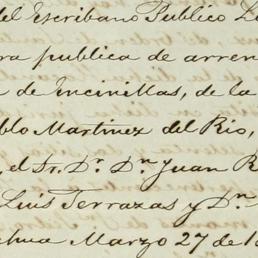 del Escribano Publico L
ra publica de arren
a de Encinillas, de la
blo Martinez del Rio,
, el Sr. Dr. Dn. Juan R
Luis Terrazas y Dn.
ahua Marzo 27 de 1